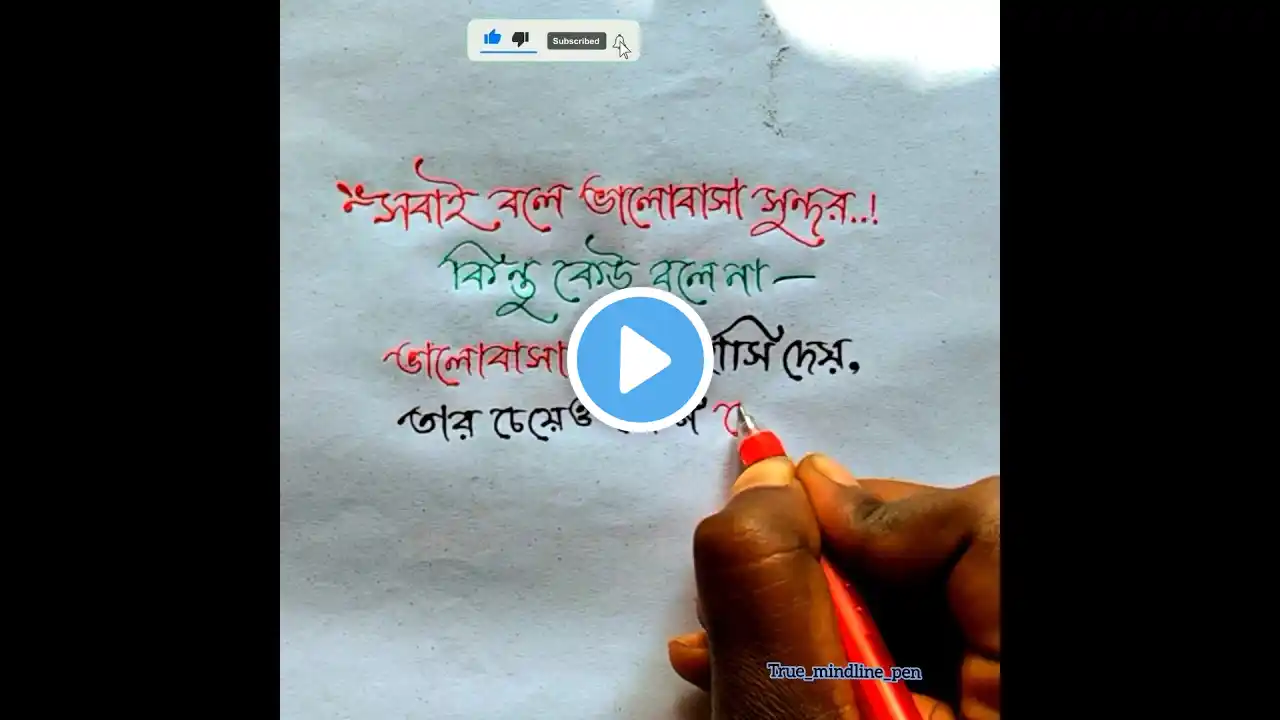 Subscribed
সবাই বলে ভালোবাসা সুন্দর..!
কিন্তু কেউ বলে না —
ভালোবাসা হাসি দেয়,
তার চেয়েও
True_mindline_pen